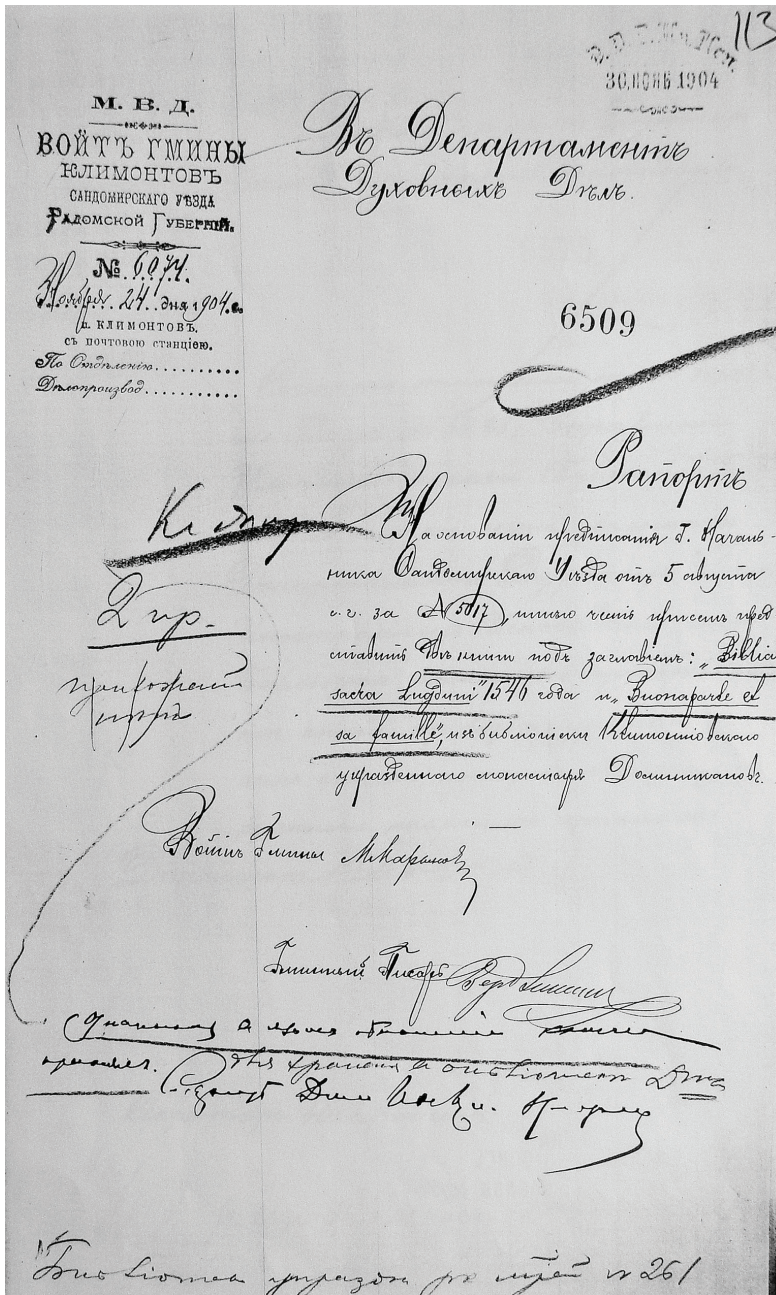 113
Д. Д. Д. Ин. Исп.
30 НОЯБ 1904
М. В. Д.
ВОЙТЪ ГМИНЫ
КЛИМОНТОВЪ
САНДОМИРСКАГО УѢЗДА
РАДОМСКОЙ ГУБЕРНІИ.
№ 6074.
Ноября 24 дня 1904 г.
п. КЛИМОНТОВЪ.
съ почтовою станціею.
По Отдѣленію..........
Дѣлопроизвод..........
Въ Департаментъ
Духовныхъ Дѣлъ.
6509
Рапортъ
Къ дѣлу
2 пр.
На основаніи предписанія Г. Началь-
ника Сандомирскаго Уѣзда отъ 5 августа
с. г. за № 5017, имѣю честь при семъ пред-
ставить двѣ книги подъ заглавіемъ: „Biblia
sacra Lugduni" 1546 года и „Buonaparte et
sa famille", изъ библіотеки Климонтовскаго
упраздненнаго монастыря Доминикановъ.
Войтъ Гмины
Гминный Писарь
для храненія въ библіотекѣ Д-та
Библіотека упраздн. № 261